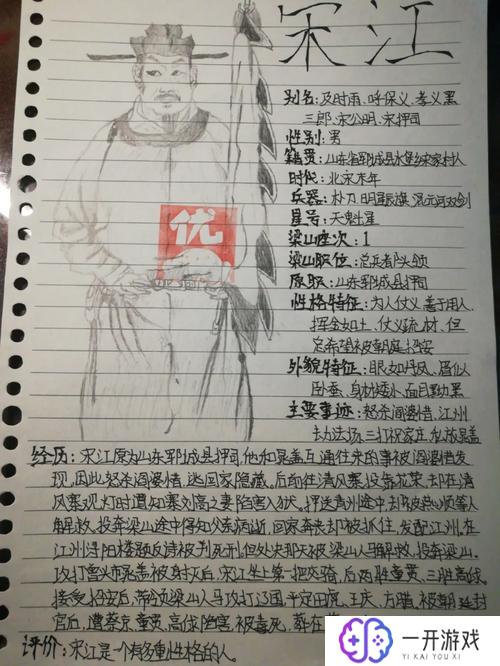 宋江
别名:及时雨、呼保义、孝义黑
三郎、宋公明、宋押司
性别:男
籍贯:山东省郓城县水堡乡宋家村人
时代:北宋末年
兵器:朴刀 明星辰旗 混元河双剑
星号:天魁星
梁山座次:1
梁山职位:总兵都头领
原职:山东郓城县押司
性格特征:为人仗义 善于用人、
挥金如土、仗义疏材、但
总希望被朝庭招安
外貌特征:眼如丹凤、眉似
卧蚕、身材矮小、面目黝黑
主要事迹:怒杀阎婆惜、江州
劫法场、三打祝家庄、私放晁盖
优
经历:宋江原为山东郓城县押司,他和晁盖互通往来的事被阎婆惜发
现,因此怒杀阎婆惜,逃回家隐藏,后前往清风寨投奔花荣,却在清
风寨观灯时遭知寨刘高之妻陷害入狱。押送青州途中却被燕顺等人
解救,投奔梁山途中得知父亲病逝,回家奔丧却被抓住,发配江州。在
江州浔阳楼题反诗被判死刑,但处决那天被梁山人马解救,投奔梁山。
攻打曾头市晁盖被射死后,宋江坐上第一把交椅,后两胜童贯,三胜高俅。
接受招安后,带领梁山人马攻打辽国,平定田虎、王庆、方腊,被朝廷封
官后,遭蔡京、童贯、高俅陷害,被毒死,葬在
评价:宋江是一个有多重性格的人。
一开游戏